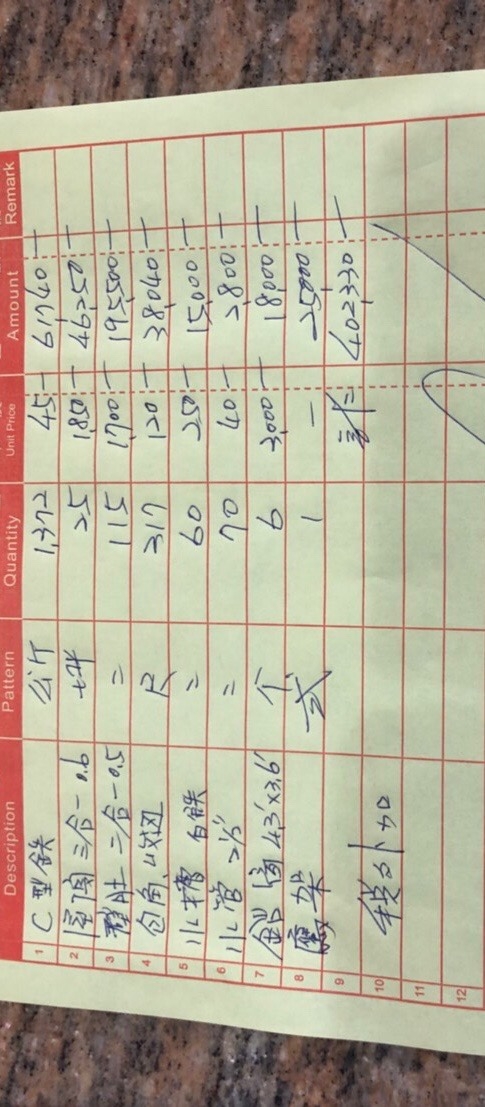 Description Pattern Quantity Unit Price Amount Remark
1 C型鉄 公斤 1,372 45— 61,740—
2 三合一 0.6 坪 25 1,850— 46,250—
3 二合一 0.5 〃 115 1,700— 195,500—
4 包角、收边 尺 317 120— 38,040—
5 水槽 白鉄 〃 60 250— 15,000—
6 水管 2½" 〃 70 40— 2,800—
7 鋁窗 4.3'×3.6' 个 6 3,000— 18,000—
8 鷹架 式 1 — 25,000—
9 計= 402,330—
10 税外加
11
12